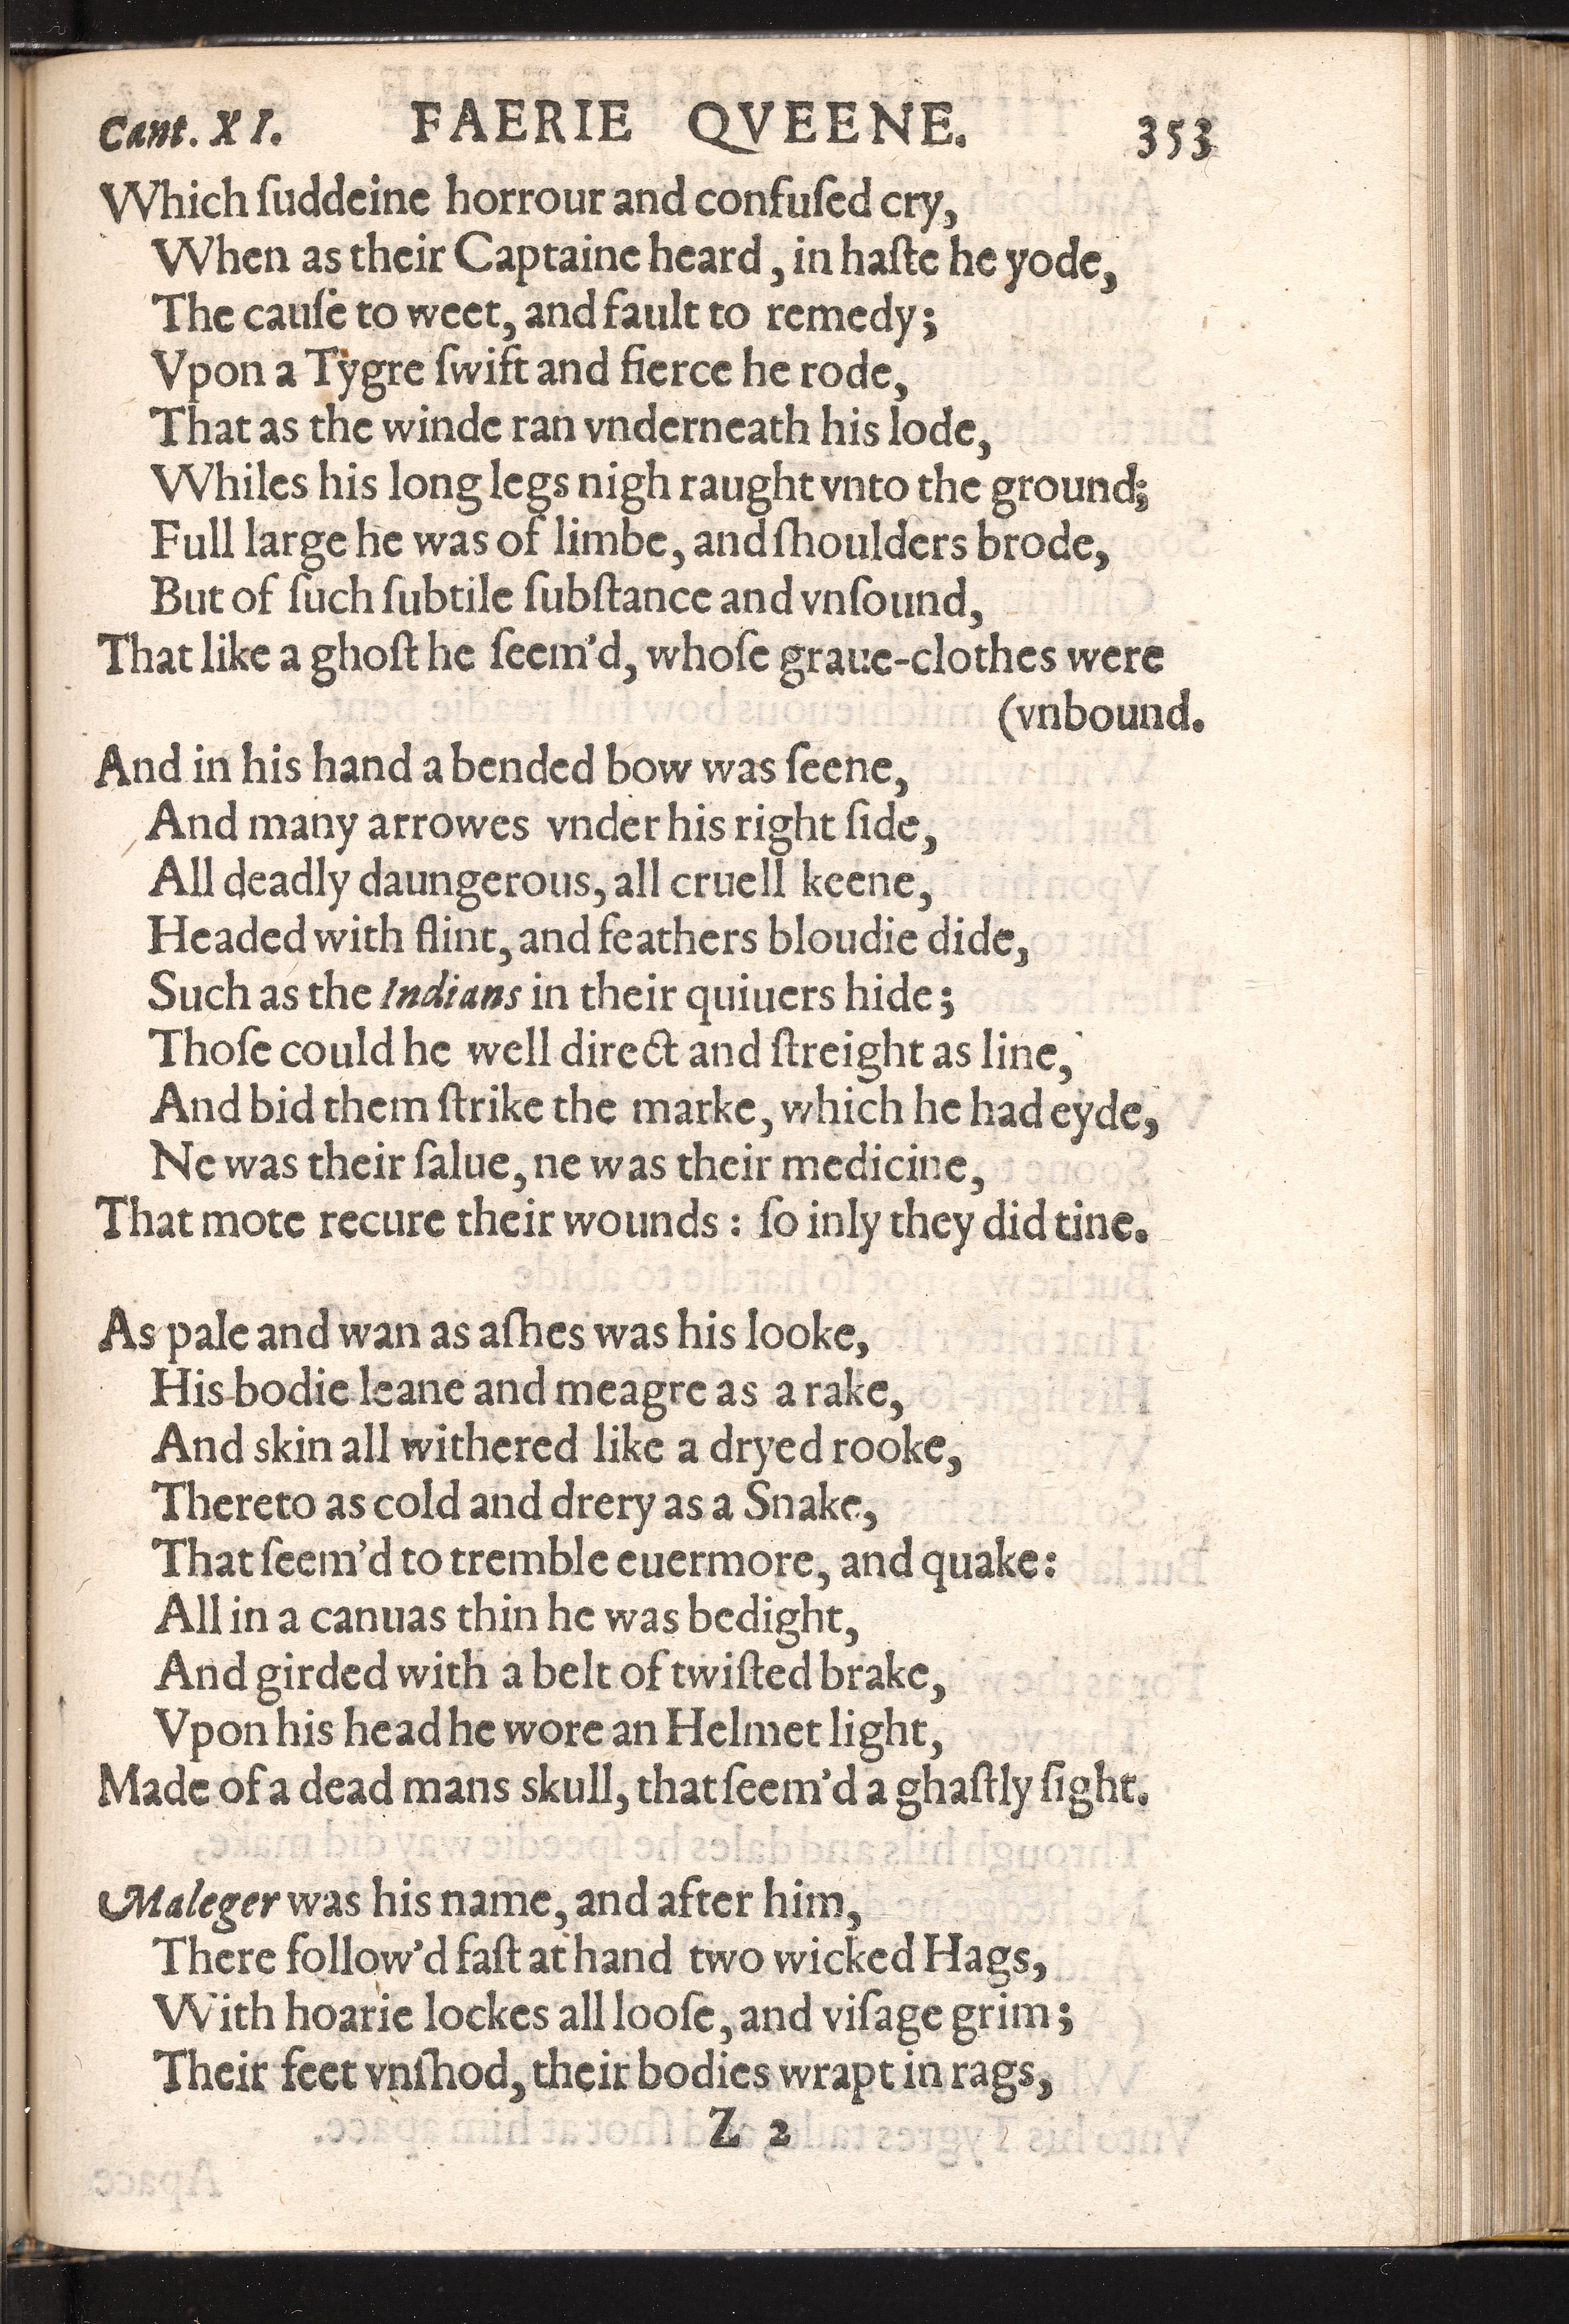 Cant. XI. FAERIE QVEENE. 353
Which ſuddeine horrour and confuſed cry,
When as their Captaine heard, in haſte he yode,
The cauſe to weet, and fault to remedy;
Vpon a Tygre ſwift and fierce he rode,
That as the winde ran vnderneath his lode,
Whiles his long legs nigh raught vnto the ground;
Full large he was of limbe, and ſhoulders brode,
But of ſuch ſubtile ſubſtance and vnſound,
That like a ghoſt he ſeem'd, whoſe graue-clothes were
(vnbound.
And in his hand a bended bow was ſeene,
And many arrowes vnder his right ſide,
All deadly daungerous, all cruell keene,
Headed with flint, and feathers bloudie dide,
Such as the Indians in their quiuers hide;
Thoſe could he well direct and ſtreight as line,
And bid them ſtrike the marke, which he had eyde,
Ne was their ſalue, ne was their medicine,
That mote recure their wounds: ſo inly they did tine.
As pale and wan as aſhes was his looke,
His bodie leane and meagre as a rake,
And skin all withered like a dryed rooke,
Thereto as cold and drery as a Snake,
That ſeem'd to tremble euermore, and quake:
All in a canuas thin he was bedight,
And girded with a belt of twiſted brake,
Vpon his head he wore an Helmet light,
Made of a dead mans skull, that ſeem'd a ghaſtly ſight.
Maleger was his name, and after him,
There follow'd faſt at hand two wicked Hags,
With hoarie lockes all looſe, and viſage grim;
Their feet vnſhod, their bodies wrapt in rags,
Z 2